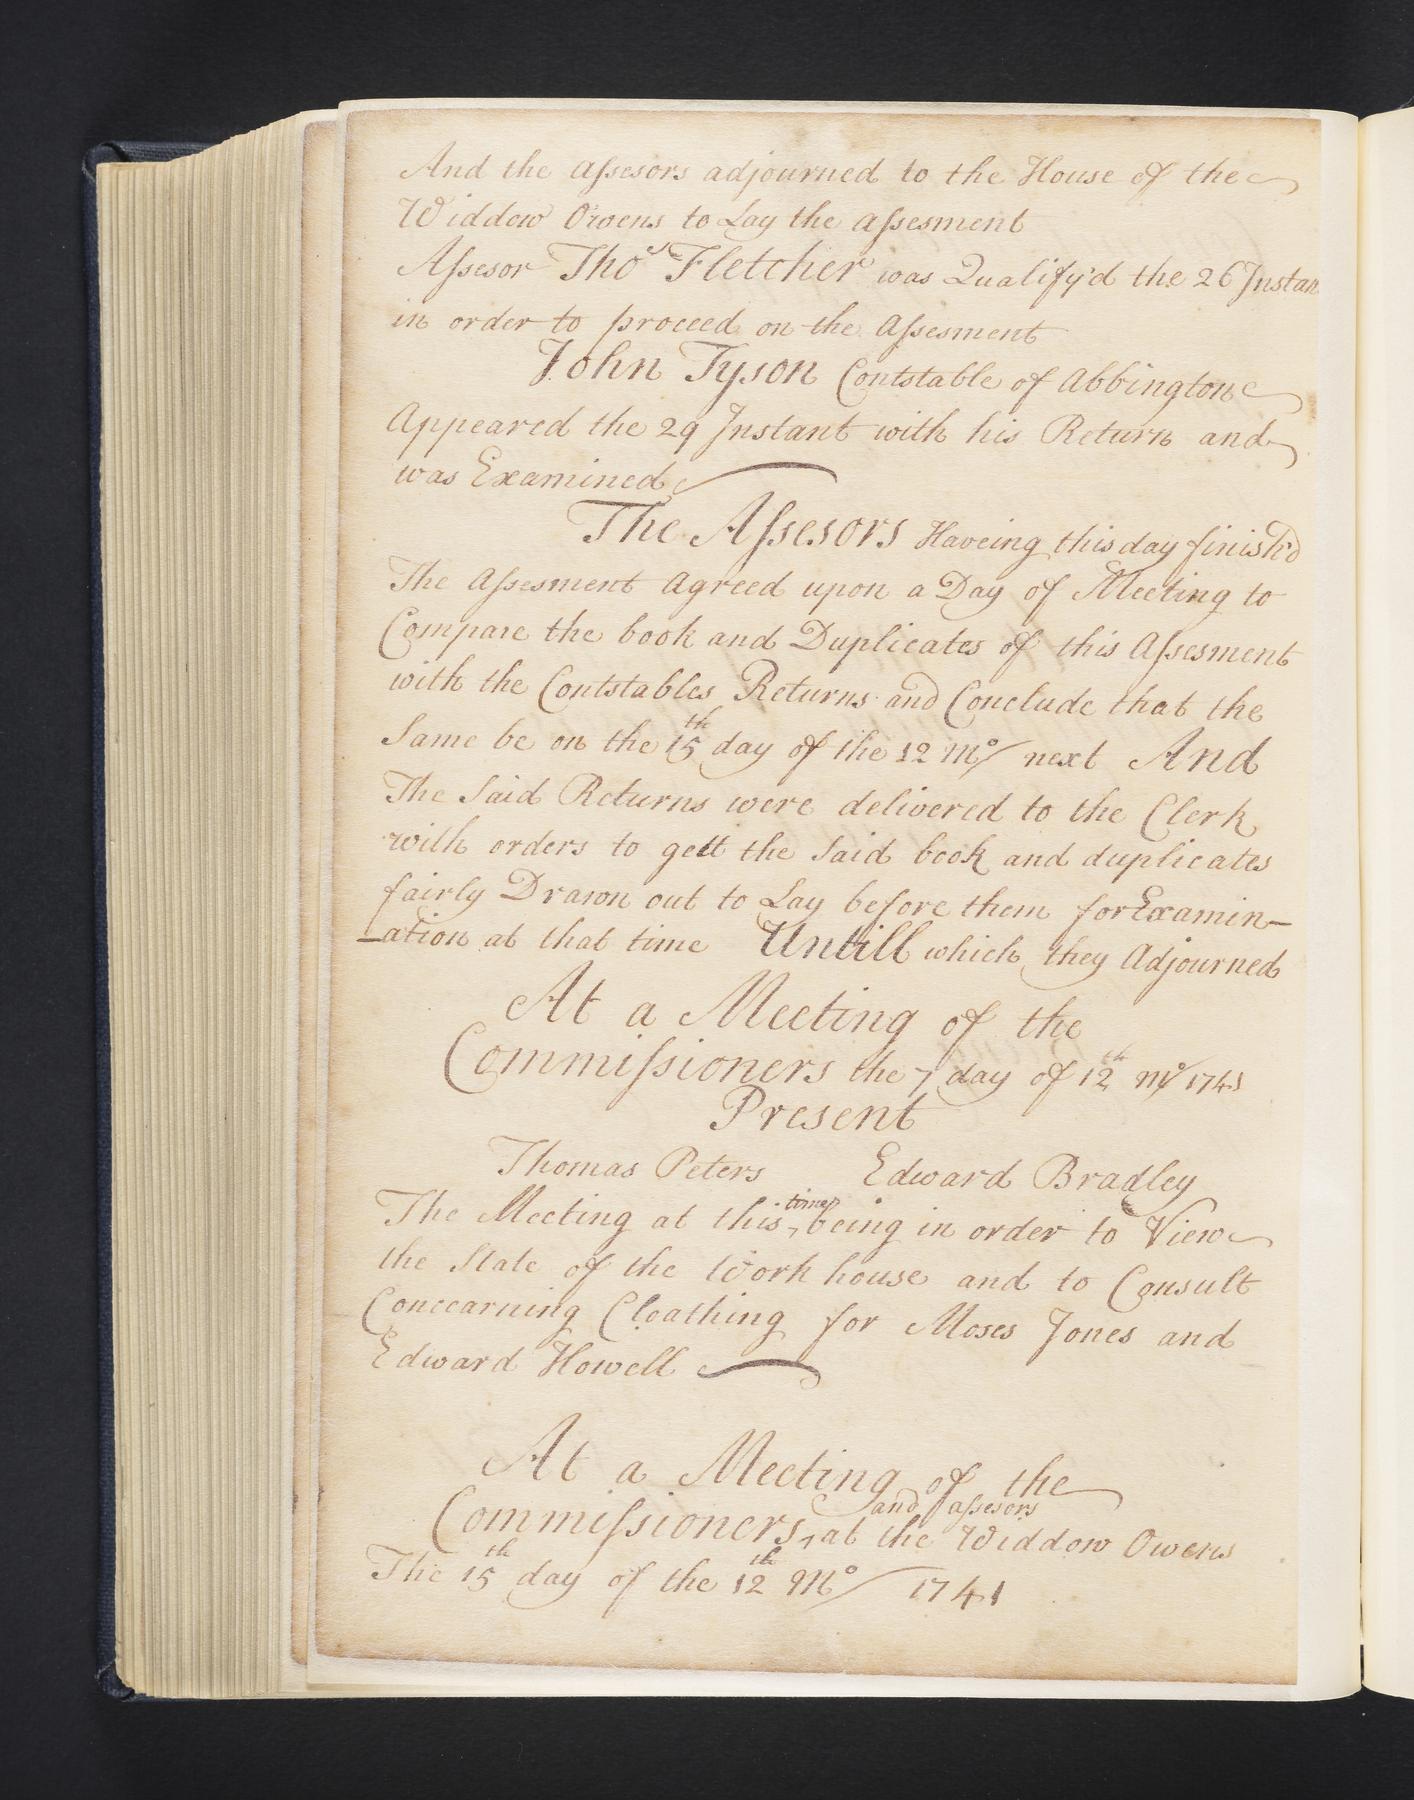 And the aſsesors adjourned to the House of the
Widdow Owens to Lay the aſsesment
Aſsesor Thos Fletcher was Qualify'd the 26 Instan
in order to proceed on the Aſsesment
John Tyson Contstable of Abbington
Appeared the 29 Instant with his Return and
was Examined
The Aſsesors Haveing this day finish'd
The Aſsesment Agreed upon a Day of Meeting to
Compare the book and Duplicates of this Aſsesment
with the Contstables Returns and Conclude that the
Same be on the 15th day of the 12 Mo/ next And
The Said Returns were delivered to the Clerk
with orders to gett the Said book and duplicates
fairly Drawn out to Lay before them for Examin–
–ation at that time Untill which they Adjourned
At a Meeting of the
Commiſsioners the 7 day of 12th Mo/ 1741
Present
Thomas Peters Edward Bradley
The Meeting at this time being in order to View
the State of the Work house and to Consult
Concearning Cloathing for Moses Jones and
Edward Howell
At a Meeting of the
Commiſsioners and aſsesors at the Widdow Owens
The 15th day of the 12th Mo/ 1741